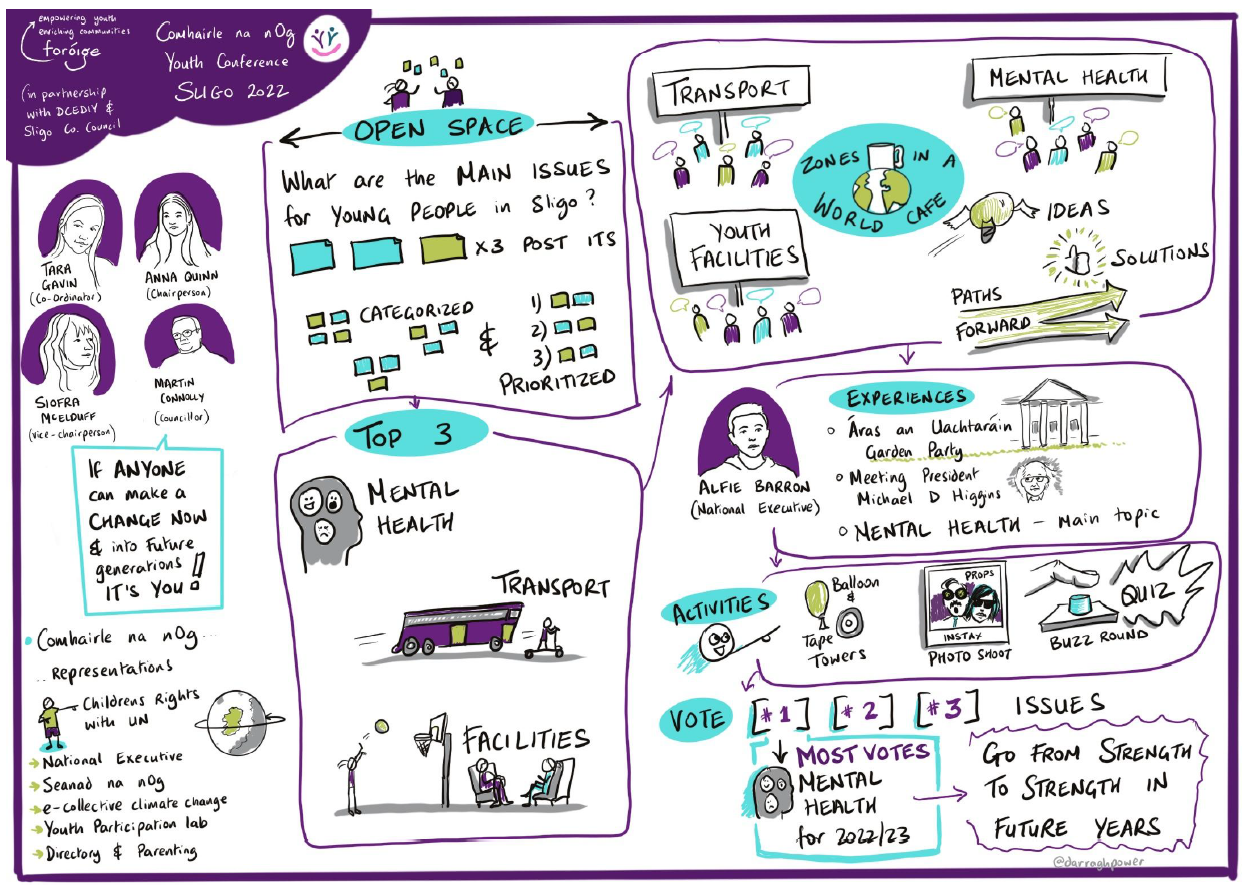 empowering youth
enriching communities
foróige
(in partnership
with DCEDIY &
Sligo Co. Council
Comhairle na nOg
Youth Conference
SLIGO 2022
TARA
GAVIN
(Co-Ordinator)
ANNA QUINN
(Chairperson)
SIOFRA
McELDUFF
(vice-chairperson)
MARTIN
CONNOLLY
(Councillor)
IF ANYONE
can make a
CHANGE NOW
& into future
generations
IT'S YOU!
Comhairle na nOg ...
.. Representations
Childrens Rights
with UN
National Executive
Seanad na nOg
e-collective climate change
Youth Participation lab
Directory & Parenting
OPEN SPACE
What are the MAIN ISSUES
for YOUNG PEOPLE in Sligo?
x3 POST ITS
CATEGORIZED
&
1)
2)
3)
PRIORITIZED
TOP 3
MENTAL
HEALTH
TRANSPORT
FACILITIES
TRANSPORT
MENTAL HEALTH
YOUTH
FACILITIES
ZONES IN A
WORLD CAFE
IDEAS
SOLUTIONS
PATHS
FORWARD
ALFIE BARRON
(National Executive)
EXPERIENCES
Áras an Uachtaráin
Garden Party
Meeting President
Michael D Higgins
MENTAL HEALTH - Main topic
ACTIVITIES
Balloon
&
Tape
Towers
PROPS
INSTAX
PHOTO SHOOT
BUZZ ROUND
QUIZ
VOTE [#1] [#2] [#3] ISSUES
MOST VOTES
MENTAL
HEALTH
for 2022/23
GO FROM STRENGTH
TO STRENGTH IN
FUTURE YEARS
@darraghpower